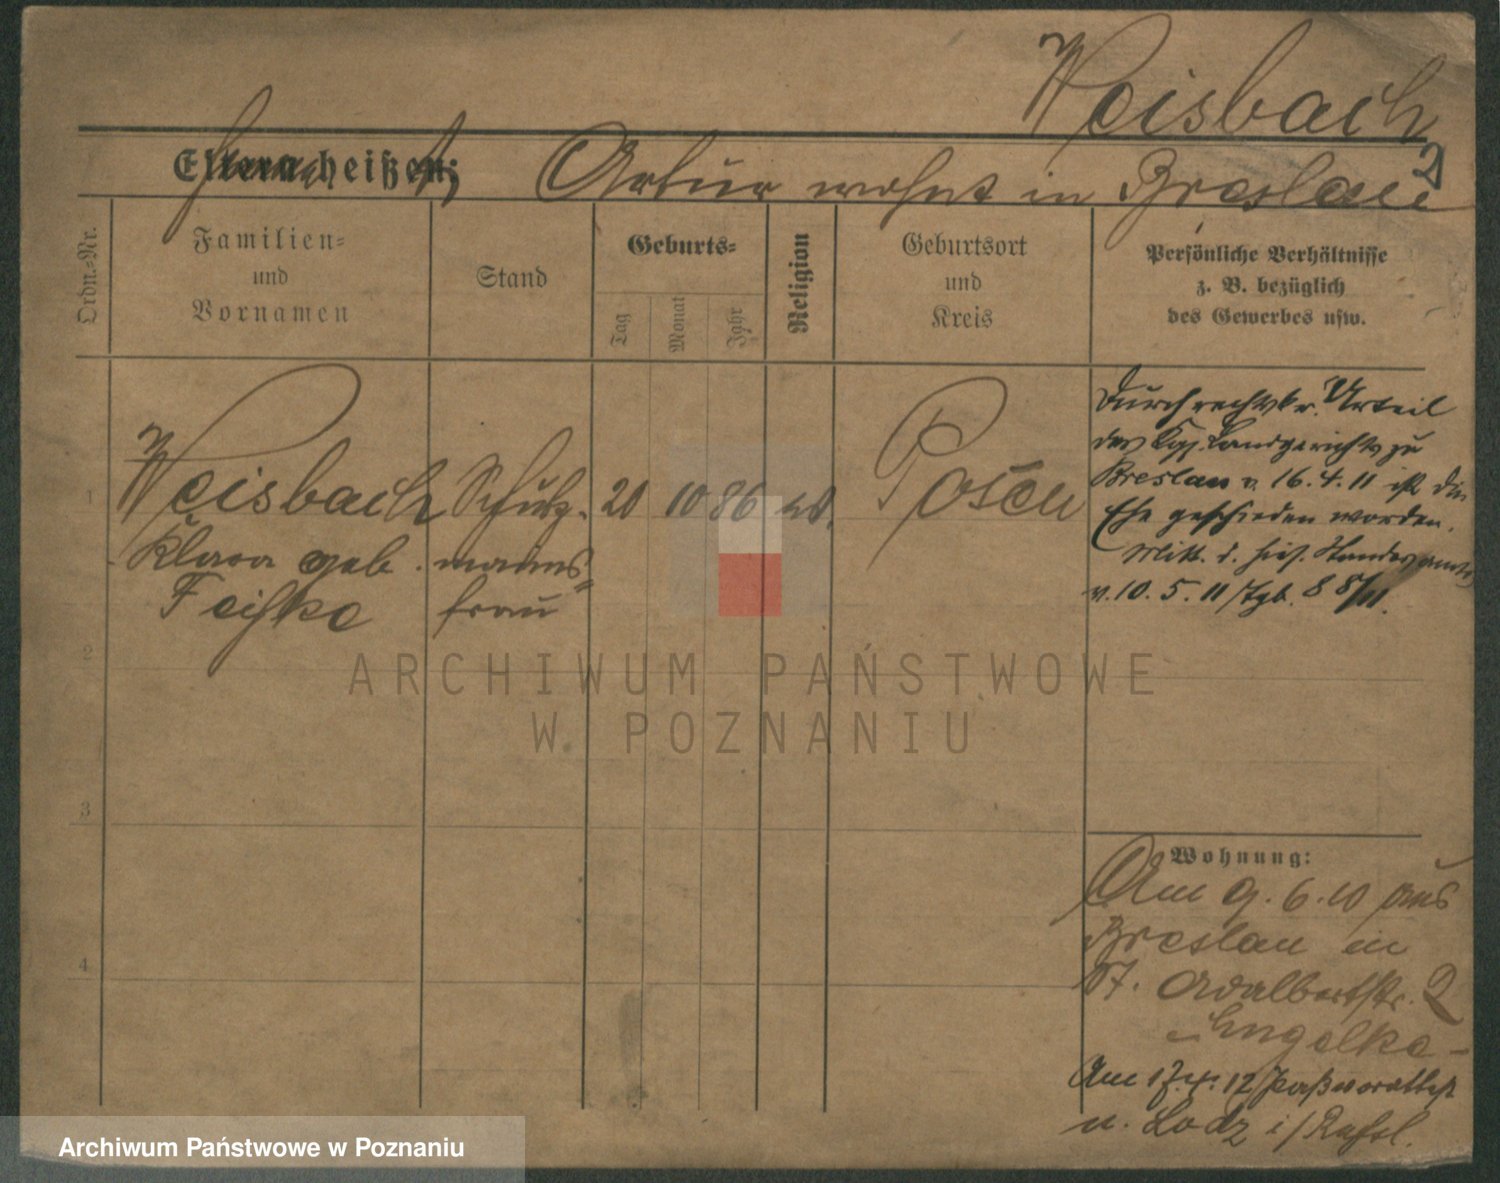 Weisbach
2
Eltern heißen:
Artur wohnt in Breslau
Ordn.-Nr.
Familien-
und
Vornamen
Stand
Geburts-
Tag
Monat
Jahr
Religion
Geburtsort
und
Kreis
Persönliche Verhältnisse
z. B. bezüglich
des Gewerbes usw.
1
Weisbach
Klara geb.
Schutz-
manns-
frau
20
10
86
Posen
Durch rechtskr. Urteil
des Kgl. Landgerichts zu
Breslau v. 16.4.11 ist die
Ehe geschieden worden.
Mitt. d. hies. Standesamts
v. 10.5.11 Tgb. 88/11.
2
3
4
Wohnung:
Am 9.6.10 aus
Breslau in
St. Adalbertstr. 2
Engelke-
Am 12
n. Lodz i/Rußl.
ARCHIWUM PAŃSTWOWE
W POZNANIU
Archiwum Państwowe w Poznaniu